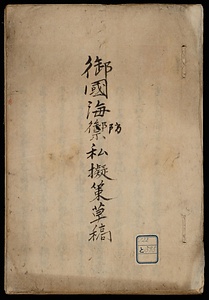 御國海禦防私擬策草稿